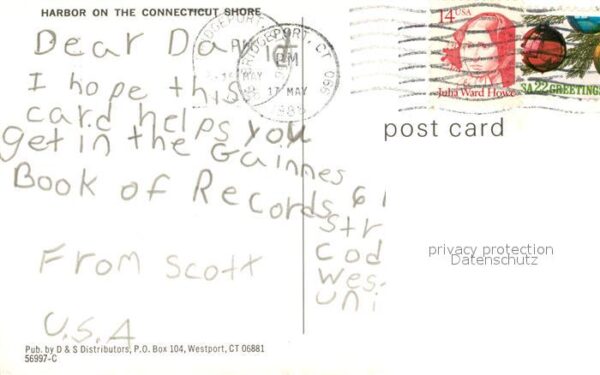 HARBOR ON THE CONNECTICUT SHORE
Dear Da
I hope this
card helps you
get in the Gainnes
Book of Records
From Scott
U.S.A
Pub. by D & S Distributors, P.O. Box 104, Westport, CT 06881
56997-C
BRIDGEPORT, CT 066
PM
17 MAY
14 USA
Julia Ward Howe
USA 22 GREETINGS
post card
6
Str
Cod
Wes
Uni
privacy protection
Datenschutz